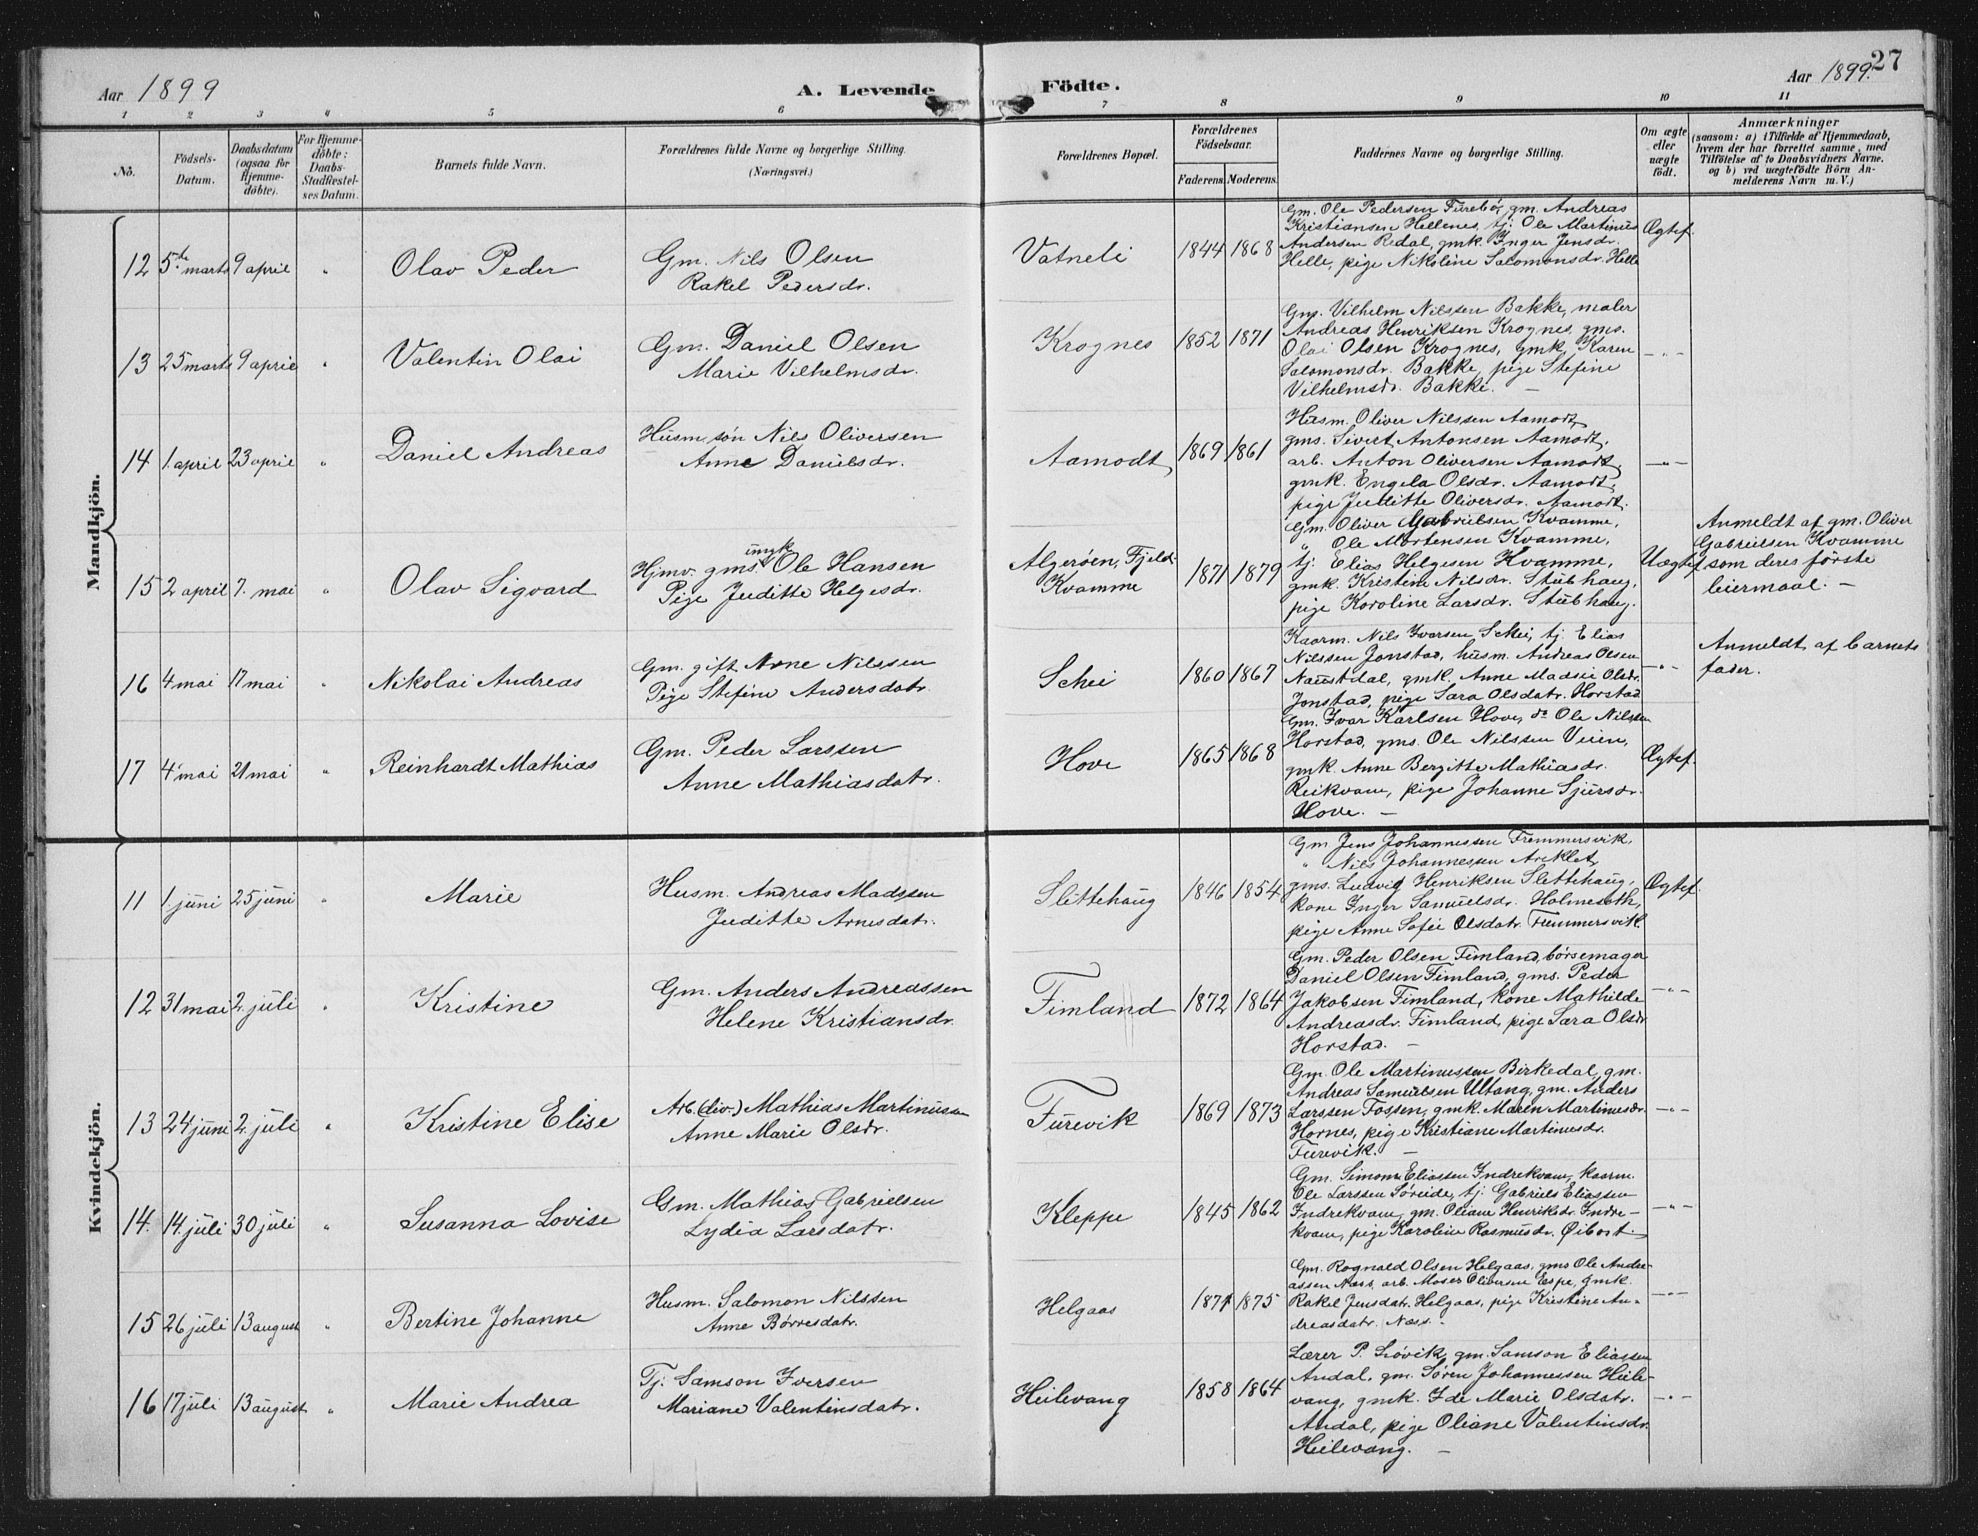 Aar 1899
A. Levende
Födte.
Aar 1899.
27
1 2 3 4 5 6 7 8 9 10 11
No.
Födsels-
Datum.
Daabsdatum
(ogsaa for
Hjemme-
döbte).
For Hjemme-
döbte:
Daabs-
Stadfæstel-
ses Datum.
Barnets fulde Navn.
Forældrenes fulde Navne og borgerlige Stilling.
(Næringsvei.)
Forældrenes Bopæl.
Forældrenes
Födselsaar.
Faderens. Moderens.
Faddernes Navne og borgerlige Stilling.
Om ægte
eller
uægte
födt.
Anmærkninger
(saasom: a) i Tilfælde af Hjemmedaab,
hvem der har forrettet samme, med
Tilföielse af to Daabsvidners Navne.
og b) ved uægtefödte Börn An-
melderens Navn m. V.)
Mandkjön.
12 5te marts 9 april "
Olav Peder
Gm. Nils Olsen
Rakel Pedersdr.
Vatneli
1844 1868
Gm. Ole Pedersen Furebö, gm. Andreas
Kristiansen Hellenes, tj. Ole Martinus
Andersen Redal, gmk. Inger Jensdr.
Helle, pige Nikoline Salomonsdr. Helle
Ægtef.
13 25 marts 9 april "
Valentin Olai
Gm. Daniel Olsen
Marie Vilhelmsdr.
Krognes
1852 1871
Gms. Vilhelm Nilssen Bakke, maler
Andreas Henriksen Krognes, gms.
Olai Olsen Krognes, gmk. Karen
Salomonsdr. Bakke, pige Stefine
Vilhelmsdr. Bakke. —
—"—
14 1. april 23 april "
Daniel Andreas
Husm. søn Nils Oliversen
Anne Danielsdr.
Aamodt
1869 1861
Husm. Oliver Nilssen Aamodt,
gms. Sivert Antonsen Aamodt,
arb. Anton Oliversen Aamodt,
gmk. Engela Olsdr. Aamodt,
pige Juditte Oliversdr. Aamodt.
—"—
15 2 april 7. mai "
Olav Sigvard
ungk
Hjmv. gms. Ole Hansen
Pige Juditte Helgesdr.
Algerøen, Fjeld.
Kvamme
1871 1879
Gm. Oliver Gabrielsen Kvamme,
" Ole Mortensen Kvamme,
tj. Elias Helgesen Kvamme,
gmk. Kristine Nilsdr. Stubhaug,
pige Karoline Larsdr. Stubhaug.
Uægtef.
Anmeldt af gm. Oliver
Gabrielsen Kvamme
som deres første
leiermaal. —
16 4 mai 17 mai "
Nikolai Andreas
Gm. gift Arne Nilssen
Pige Stefine Andersdatr.
Schei
1860 1867
Kaarm. Nils Ivarsen Schei, tj. Elias
Nilssen Jonstad, husm. Andreas Olsen
Naustdal, gmk. Anne Madsie Olsdr.
Jonstad, pige Sara Olsdatr. Horstad
—"—
Anmeldt af barnets
fader.
17 4 mai 21 mai "
Reinhardt Mathias
Gm. Peder Larssen
Anne Mathiasdatr.
Hove
1865 1868
Gm. Ivar Karlsen Hove, do Ole Nilssen
Horstad, gms. Ole Nilssen Veien,
gmk. Anne Bergitte Mathiasdr.
Reikvam, pige Johanne Sjursdr.
Hove. —
Ægtef.
Kvindekjön.
11 1. juni 25 juni "
Marie
Husm. Andreas Madssen
Juditte Arnesdatr.
Slettehaug
1846 1854
Gm. Jens Johannessen Fremmersvik,
" Nils Johannessen Areklet,
gms. Ludvig Henriksen Slettehaug,
kone Inger Samuelsdr. Holmeseth,
pige Anne Sofie Olsdatr. Fremmersvik.
Ægtef.
12 31 mai 2. juli "
Kristine
Gm. Anders Andreassen
Helene Kristiansdr.
Fimland
1872 1864
Gm. Peder Olsen Fimland, børsemager
Daniel Olsen Fimland, gms. Peder
Jakobsen Fimland, kone Mathilde
Andreasdr. Fimland, pige Sara Olsdr.
Horstad. —
—"—
13 24 juni 2. juli "
Kristine Elise
Arb. (div.) Mathias Martinussen
Anne Marie Olsdr.
Furevik
1869 1873
Gm. Ole Martinussen Birkedal, gm.
Andreas Samuelsen Ullang, gm. Anders
Larssen Fossen, gmk. Maren Martinusdr.
Hornes, pige Kristiane Martinusdr.
Furevik. —
—"—
14. 14. juli 30 juli "
Susanna Lovise
Gm. Mathias Gabrielsen
Lydia Larsdatr.
Kleppe
1845 1862
Gm. Simon Eliassen Indrekvam, kaarm.
Ole Larssen Søreide, tj. Gabriels Eliassen
Indrekvam, gm. Oliane Henriksdr. Indre-
kvam, pige Karoline Rasmusdr. Øibost.
—"—
15 26 juli 13 august "
Bertine Johanne
Husm. Salomon Nilssen
Anne Børresdatr.
Helgaas
1871 1875
Gm. Rognald Olsen Helgaas, gms Ole Andre-
assen Næss, arb. Moses Oliversen Espe, gmk.
Rakel Jensdatr. Helgaas, pige Kristine An-
dreasdatr. Næss. -
—"—
16 17 juli 13 august "
Marie Andrea
Tj. Samson Iversen
Mariane Valentinsdatr.
Heilevang
1858 1864
Lærer P. Løvik, gm. Samson Eliassen
Andal, gm. Søren Johannessen Heile-
vang, gmk. Ide Marie Olsdatr.
Andal, pige Oliane Valentinsdr.
Heilevang. —
—"—